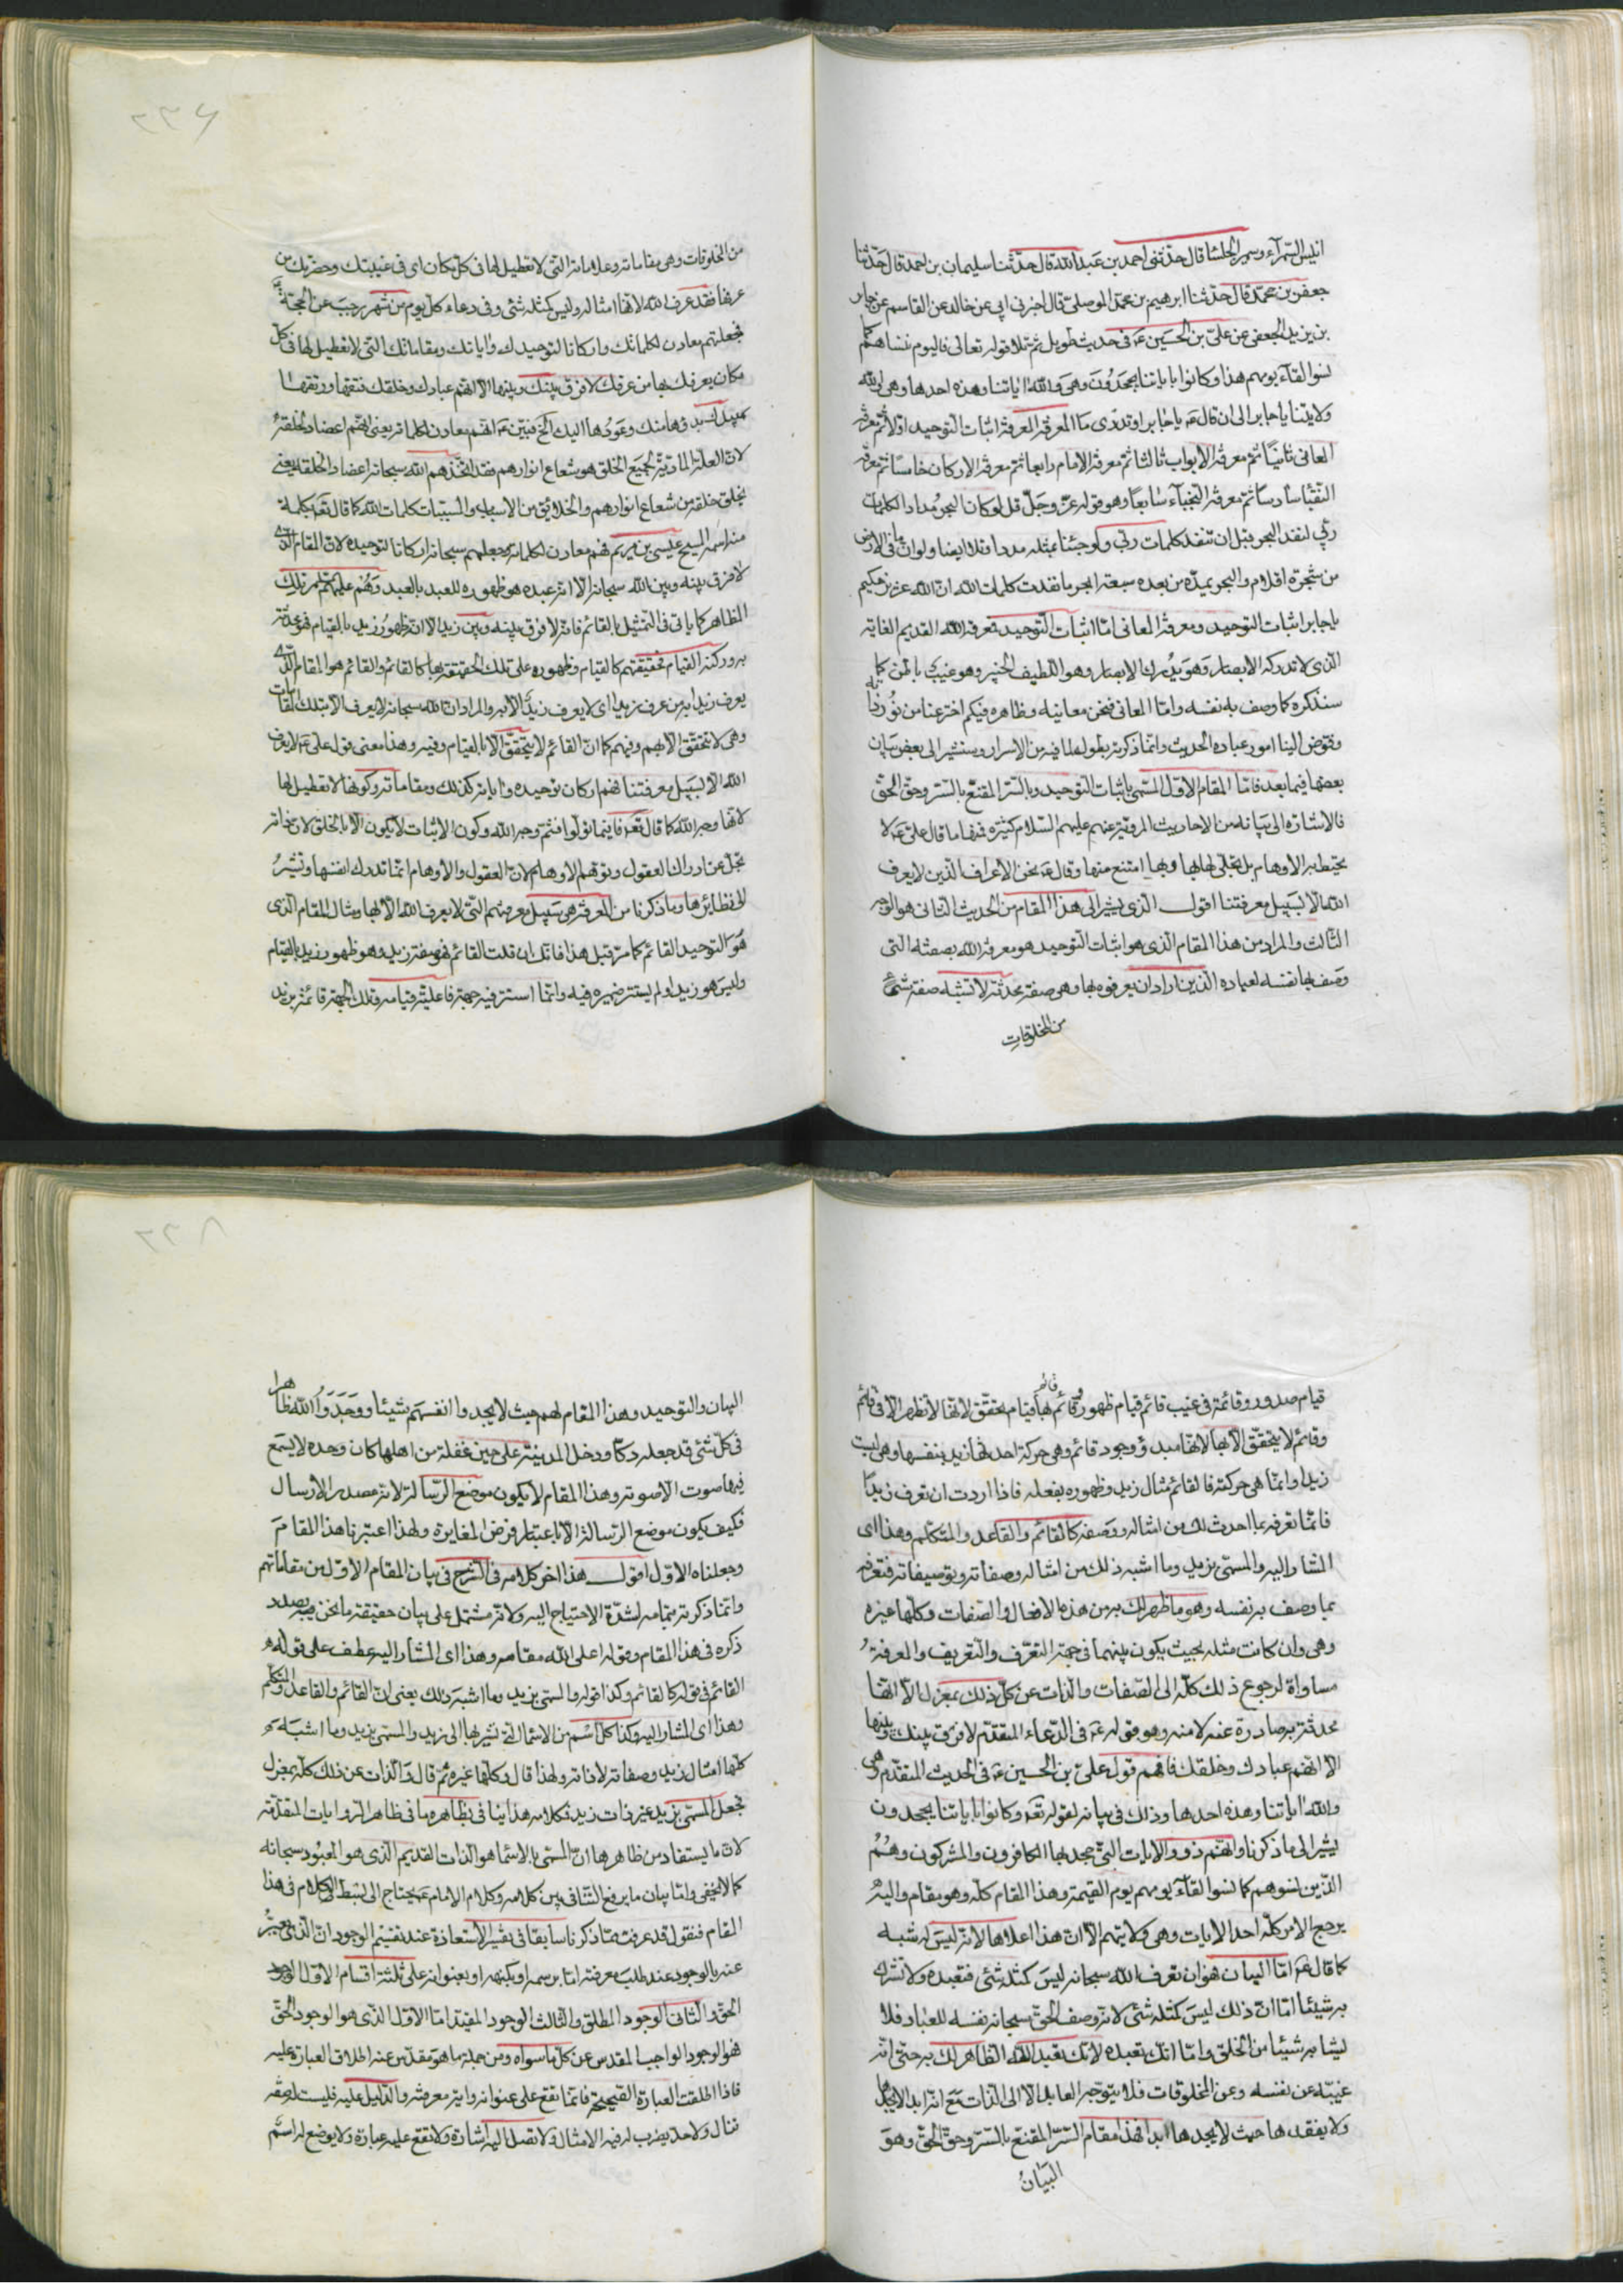 انيس السمرآء وسمير الجلسا قال حدثنى احمد بن عبدالله قال حدثنا سليمان بن احمد قال حدثنا
جعفر بن محمد قال حدثنا ابرهيم بن محمد الموصلى قال اخبرنى ابى عن خالد عن القاسم عن جابر
بن يزيد الجعفى عن على بن الحسين ع فى حديث طويل ثم تلا قوله تعالى فاليوم ننساهم كما
نسوا لقآء يومهم هذا وكانوا باياتنا يجحدون وهى والله اياتنا وهذه احدها وهى والله
ولايتنا يا جابر الى ان قال ع يا جابر اوتدرى ما المعرفة المعرفة اثبات التوحيد اولا ثم معرفة
المعانى ثانيا ثم معرفة الابواب ثالثا ثم معرفة الامام رابعا ثم معرفة الاركان خامسا ثم معرفة
النقبا سادسا ثم معرفة النجبآء سابعا وهو قوله عز وجل قل لو كان البحر مدادا لكلمات
ربى لنفد البحر قبل ان تنفد كلمات ربى ولو جئنا بمثله مددا وتلا ايضا ولو ان ما فى الارض
من شجرة اقلام والبحر يمده من بعده سبعة ابحر ما نفدت كلمات الله ان الله عزيز حكيم
يا جابر اثبات التوحيد ومعرفة المعانى اما اثبات التوحيد معرفة الله القديم الغاية
الذى لا تدركه الابصار وهو يدرك الابصار وهو اللطيف الخبير وهو غيب باطن كما
سنذكره كما وصف به نفسه واما المعانى فنحن معانيه وظاهره فيكم اخترعنا من نور ذاته
وفوض الينا امور عباده الحديث وانما ذكرته بطوله لما فيه من الاسرار وسنشير الى بعض بيان
بعضها فيما بعد فاما المقام الاول المسمى باثبات التوحيد وبالسر المقنع بالسر وحق الحق
فالاشارة الى بيانه من الاحاديث المروية عنهم عليهم السلام كثيرة فمنها ما قال على ع لا
تحيط به الاوهام بل تجلى لها بها وبها امتنع منها وقال ع نحن الاعراف الذين لا يعرف
الله الا بسبيل معرفتنا اقول الذى يشير الى هذا المقام من الحديث الثانى هو الوجه
الثالث والمراد من هذا المقام الذى هو اثبات التوحيد هو معرفة الله بصفته التى
وصف بها نفسه لعباده الذين اراد ان يعرفوه بها وهى صفة محدثة لا تشبه صفة شئ
من المخلوقات
٢٣۶
من المخلوقات وهى مقاماته وعلاماته التى لا تعطيل لها فى كل مكان اى فى غيبتك وحضرتك من
عرفها فقد عرف الله لانها امثاله وليس كمثله شئ وفى دعاء كل يوم من شهر رجب عن الحجة ع
فجعلتهم معادن لكلماتك واركانا لتوحيدك واياتك ومقاماتك التى لا تعطيل لها فى كل
مكان يعرفك بها من عرفك لا فرق بينك وبينها الا انهم عبادك وخلقك فتقها ورتقها
بيدك بدؤها منك وعودها اليك الخ فبين ع انهم معادن لكلماته يعنى انهم اعضاد لخلقه
لان العلة المادية لجميع الخلق هو شعاع انوارهم فقد اتخذهم الله سبحانه اعضادا لخلقه يعنى
يخلق خلقه من شعاع انوارهم والخلايق من الاسباب والمسببات كلمات الله كما قال تع بكلمة
منه اسمه المسيح عيسى بن مريم فهم معادن لكلماته وجعلهم سبحانه اركانا لتوحيده لان المقام الذى
لا فرق بينه وبين الله سبحانه الا انه عبده هو ظهوره للعبد بالعبد وهم عليهم السلام ذلك
الظاهر كما ياتى فى التمثيل بالقائم فانه لا فرق بينه وبين زيد الا انه ظهور زيد بالقيام فهو محدثة
به وركنه القيام فحقيقتهم كالقيام وظهوره على تلك الحقيقة بها كالقائم والقائم هو المقام الذى
يعرف زيد به من عرف زيدا اى لا يعرف زيد الا به والمراد ان الله سبحانه لا يعرف الا بتلك المقامات
وهى لا تتحقق الا بهم وفيهم كما ان القائم لا يتحقق الا بالقيام وفيه وهذا معنى قول على ع لا يعرف
الله الا بسبيل معرفتنا فهم اركان توحيده واياته كذلك ومقاماته وكونها لا تعطيل لها
لانها وجه الله كما قال تع فاينما تولوا فثم وجه الله وكون الاثبات لا يكون الا بالخلق لان ذاته
تجل عن ادراك العقول وتوهم الاوهام لان العقول والاوهام انما تدرك انفسها وتشير
الى نظائرها وما ذكرنا من المعرفة هى سبيل معرفتهم التى لا يعرف الله الا بها ومثال المقام الذى
هو التوحيد القائم كما مر قبل هذا فانك ان قلت القائم فهو صفة زيد وهو ظهور زيد بالقيام
وليس هو زيد اولم يستتر ضميره فيه وانما استتر فيه جهة فاعلية قيامه وتلك الجهة قائمة بزيد
قيام صدور وقائمة فى غيب قائم قيام ظهور وقائم بها قيام تحقق لانها لا تظهر الا فى قائم
وقائم لا يتحقق الا بها لانها مبدؤ وجود قائم وهى حركة احدثها زيد بنفسها وهى ليست
زيدا وانما هى حركته فالقائم مثال زيد وظهوره بفعله فاذا اردت ان تعرف زيدا
فانما تعرفه بما احدث لك من امثاله ووصفه كالقائم والقاعد والمتكلم وهذا اى
المشار اليه والمسمى بزيد وما اشبه ذلك من امثاله وصفاته وتوصيفاته فتعرفه
بما وصف به نفسه وهو ما ظهر لك به من هذه الافعال والصفات وكلها غيره
وهى وان كانت مثله بحيث يكون بينهما فى جهة التعرف والتعريف والمعرفة
مساواة لرجوع ذلك كله الى الصفات والذات عن كل ذلك بمعزل الا انها
محدثة به صادرة عنه لا منه وهو قوله ع فى الدعاء المتقدم لا فرق بينك وبينها
الا انهم عبادك وخلقك فافهم قول على بن الحسين ع فى الحديث المتقدم وهى
والله اياتنا وهذه احدها وذلك فى بيانه لقوله تع وكانوا باياتنا يجحدون
يشير الى ما ذكرنا وانهم ذوو الايات التى جحد بها الكافرون والمشركون وهم
الذين نسوهم كما نسوا لقآء يومهم يوم القيمة وهذا المقام كله وهو مقام واليه
يرجع الامر كله احد الايات وهى ولايتهم الا ان هذا اعلاها لانه ليس له شبه
كما قال ع اما البيان هو ان تعرف الله سبحانه ليس كمثله شئ فتعبده ولا تشرك
به شيئا اما ان ذلك ليس كمثله شئ لانه وصف الحق سبحانه نفسه للعباد فلا
يشابه شيئا من الخلق واما انك تعبده لانك تعبد الله الظاهر لك به حتى انه
غيبه عن نفسه وعن المخلوقات فلا يتوجه العابد الا الى الذات مع انه ابدا لا يجدها
ولا يفقدها حيث لا يجدها ابدا فهذا مقام السر المقنع بالسر وحق الحق وهو
البيان
٢٣٨
البيان والتوحيد وهذا المقام لهم حيث لا يجدوا انفسهم شيئا ووجدوا الله ظاهرا
فى كل شئ قد جعله دكا ودخل المدينة على حين غفلة من اهلها كان وحده لا يسمع
فيها صوت الا صوته وهذا المقام لا يكون موضع الرسالة لانه مصدر الارسال
فكيف يكون موضع الرسالة الا باعتبار فرض المغايرة ولهذا اعتبرنا هذا المقام
وجعلناه الاول اقول هذا اخر كلامه فى الشرح فى بيان المقام الاول من مقاماتهم
وانما ذكرته بتمامه لشدة الاحتياج اليه ولانه مشتمل على بيان حقيقة ما نحن بصدد
ذكره فى هذا المقام وقوله اعلى الله مقامه وهذا اى المشار اليه عطف على قوله
القائم فى قوله كالقائم وكذا قوله والمسمى بزيد وما اشبه ذلك يعنى ان القائم والقاعد والمتكلم
وهذا اى المشار اليه وكذا كل اسم من الاسمآء التى تشير بها الى زيد والمسمى بزيد وما اشبه
كلها امثال زيد وصفاته لا ذاته ولهذا قال وكلها غيره ثم قال والذات عن ذلك كله بمعزل
فجعل المسمى بزيد غير ذات زيد فكلامه هذا ينافى بظاهره ما فى ظاهر الروايات المتقدمة
لان ما يستفاد من ظاهرها ان المسمى بالاسمآء هو الذات القديم الذى هو المعبود سبحانه
كما لا يخفى واما بيان ما يرفع التنافى بين كلامه وكلام الامام ع يحتاج الى بسط الكلام فى هذا
المقام فنقول قد عرفت مما ذكرنا سابقا فى تفسير الاستعاذة عند تقسيم الوجود ان الذى يعبر
عنه بالوجود عند طلب معرفته اما برسمه او بكنهه او بعنوانه على ثلثة اقسام الاول الوجود
الحق والثانى الوجود المطلق والثالث الوجود المقيد اما الاول الذى هو الوجود الحق
فهو الوجود الواجب المقدس عن كل ما سواه ومن جملة ما هو مقدس عنه اطلاق العبارة عليه
فاذا اطلقت العبارة الصحيحة فانما تقع على عنوانه واية معرفته والدليل عليه فليست له صفة
تنال ولا حد يضرب له فيه الامثال ولا تصل اليه اشارة ولا تقع عليه عبارة ولا يوضع له اسم